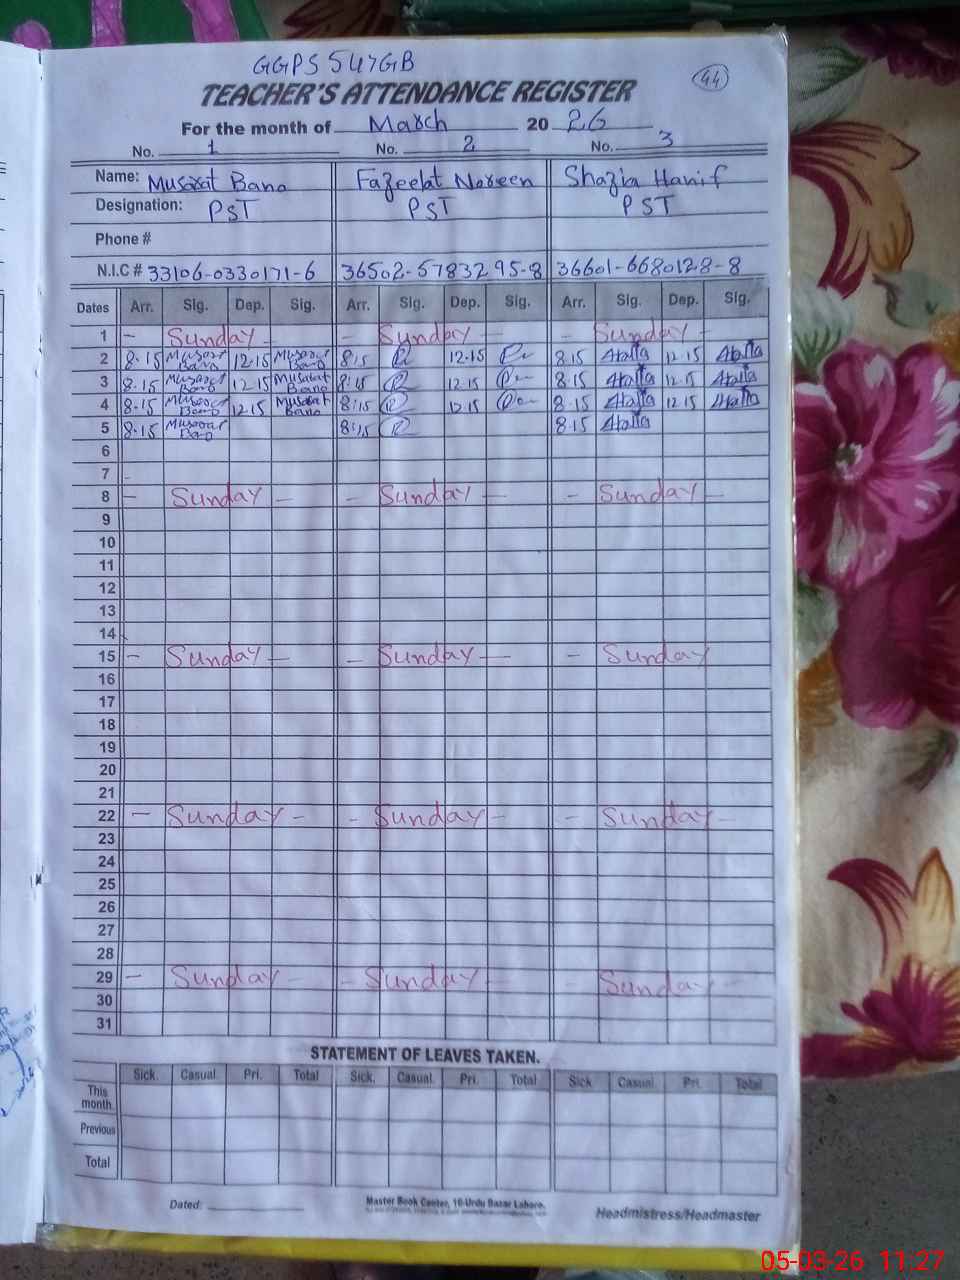 GGPS 547GB
44
TEACHER'S ATTENDANCE REGISTER
For the month of March 20 26
No. 1 No. 2 No. 3
Name: Musarat Bano Fazeelat Noreen Shazia Hanif
Designation: PST PST PST
Phone #
N.I.C # 33106-0330171-6 36502-5783295-8 36601-6680128-8
Dates Arr. Sig. Dep. Sig. Arr. Sig. Dep. Sig. Arr. Sig. Dep. Sig.
1 - Sunday - - Sunday - - Sunday -
2 8.15 Musarat Bano 12.15 Musarat Bano 8:15 12.15 8.15 12.15
3 8.15 Musarat Bano 12.15 Musarat Bano 8:15 12.15 8.15 12.15
4 8.15 Musarat Bano 12.15 Musarat Bano 8:15 12.15 8.15 12.15
5 8.15 Musarat Bano 8:15 8.15
6
7
8 - Sunday - - Sunday - - Sunday -
9
10
11
12
13
14
15 - Sunday - - Sunday - - Sunday
16
17
18
19
20
21
22 - Sunday - - Sunday - - Sunday -
23
24
25
26
27
28
29 - Sunday - - Sunday - - Sunday -
30
31
STATEMENT OF LEAVES TAKEN.
Sick. Casual. Pri. Total Sick. Casual. Pri. Total Sick Casual. Pri. Total
This month
Previous
Total
Dated:
Master Book Center, 16-Urdu Bazar Lahore.
Headmistress/Headmaster
05-03-26 11:27